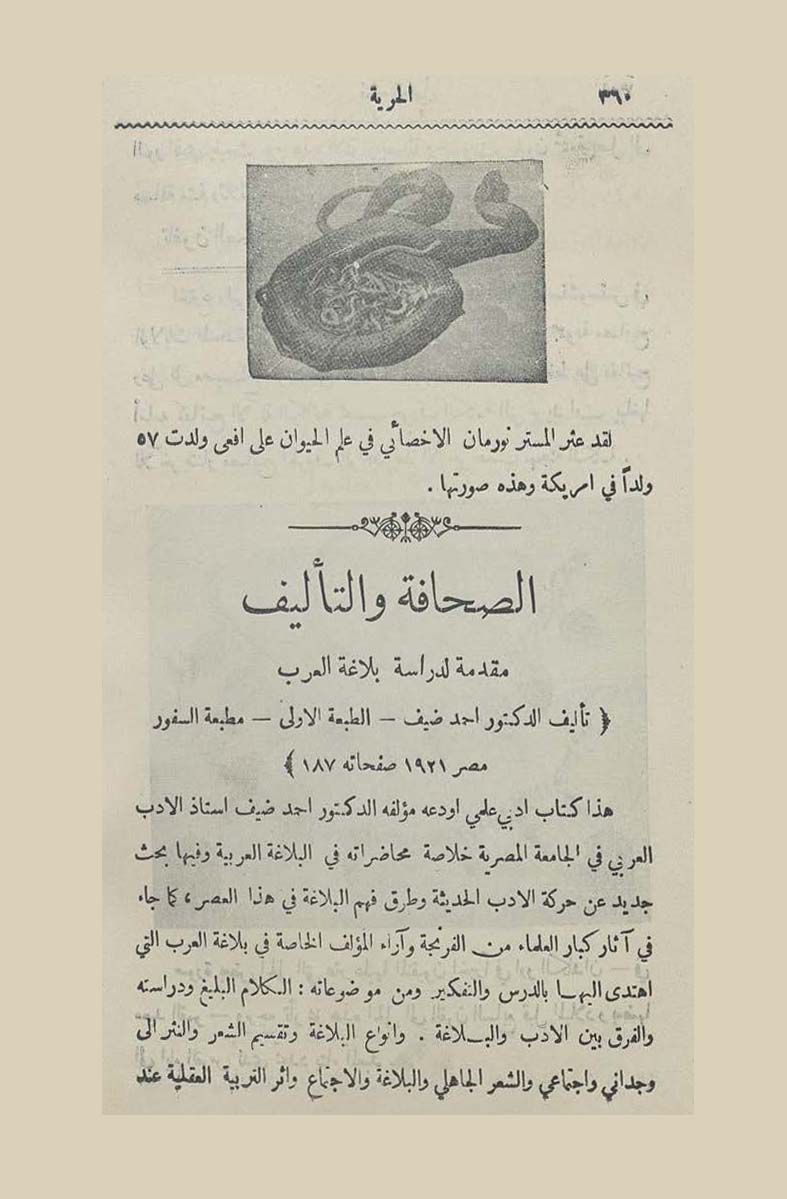 ٣٦٠
الحرية
لقد عثر المستر نورمان الاخصائي في علم الحيوان على افعى ولدت ٥٧
ولداً في امريكة وهذه صورتها .
الصحافة والتأليف
مقدمة لدراسة بلاغة العرب
﴿ تأليف الدكتور احمد ضيف – الطبعة الاولى – مطبعة السفور
مصر ١٩٢١ صفحاته ١٨٧ ﴾
هذا كتاب ادبي علمي اودعه مؤلفه الدكتور احمد ضيف استاذ الادب
العربي في الجامعة المصرية خلاصة محاضراته في البلاغة العربية وفيها بحث
جديد عن حركة الادب الحديثة وطرق فهم البلاغة في هذا العصر ، كما جاء
في آثار كبار العلماء من الفرنجة وآراء المؤلف الخاصة في بلاغة العرب التي
اهتدى اليها بالدرس والتفكير ومن موضوعاته : الكلام البليغ ودراسته
والفرق بين الادب والبلاغة . وانواع البلاغة وتقسيم الشعر والنثر الى
وجداني واجتماعي والشعر الجاهلي والبلاغة والاجتماع واثر التربية العقلية عند